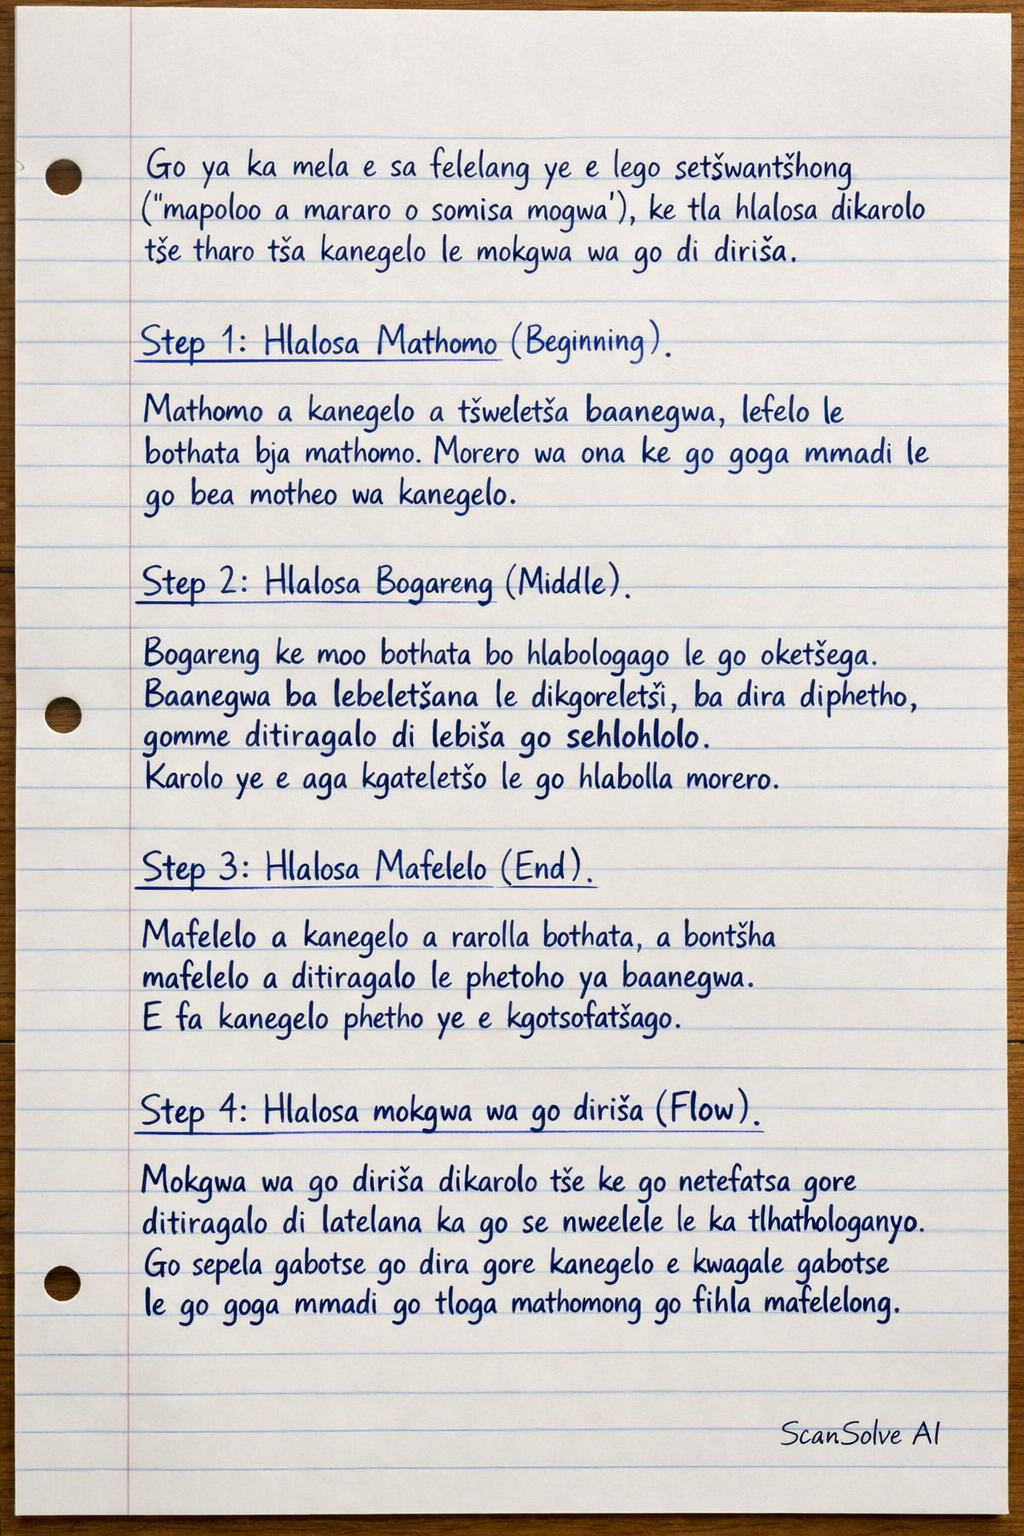 Go ya ka mela e sa felelang ye e lego setšwantšhong
("mapoloo a mararo o somisa mogwa'), ke tla hlalosa dikarolo
tše tharo tša kanegelo le mokgwa wa go di diriša.
Step 1: Hlalosa Mathomo (Beginning).
Mathomo a kanegelo a tšweletša baanegwa, lefelo le
bothata bja mathomo. Morero wa ona ke go goga mmadi le
go bea motheo wa kanegelo.
Step 2: Hlalosa Bogareng (Middle).
Bogareng ke moo bothata bo hlabologago le go oketšega.
Baanegwa ba lebeletšana le dikgoreletši, ba dira diphetho,
gomme ditiragalo di lebiša go sehlohlolo.
Karolo ye e aga kgateletšo le go hlabolla morero.
Step 3: Hlalosa Mafelelo (End).
Mafelelo a kanegelo a rarolla bothata, a bontšha
mafelelo a ditiragalo le phetoho ya baanegwa.
E fa kanegelo phetho ye e kgotsofatšago.
Step 4: Hlalosa mokgwa wa go diriša (Flow).
Mokgwa wa go diriša dikarolo tše ke go netefatsa gore
ditiragalo di latelana ka go se nweelele le ka tlhathologanyo.
Go sepela gabotse go dira gore kanegelo e kwagale gabotse
le go goga mmadi go tloga mathomong go fihla mafelelong.
ScanSolve AI